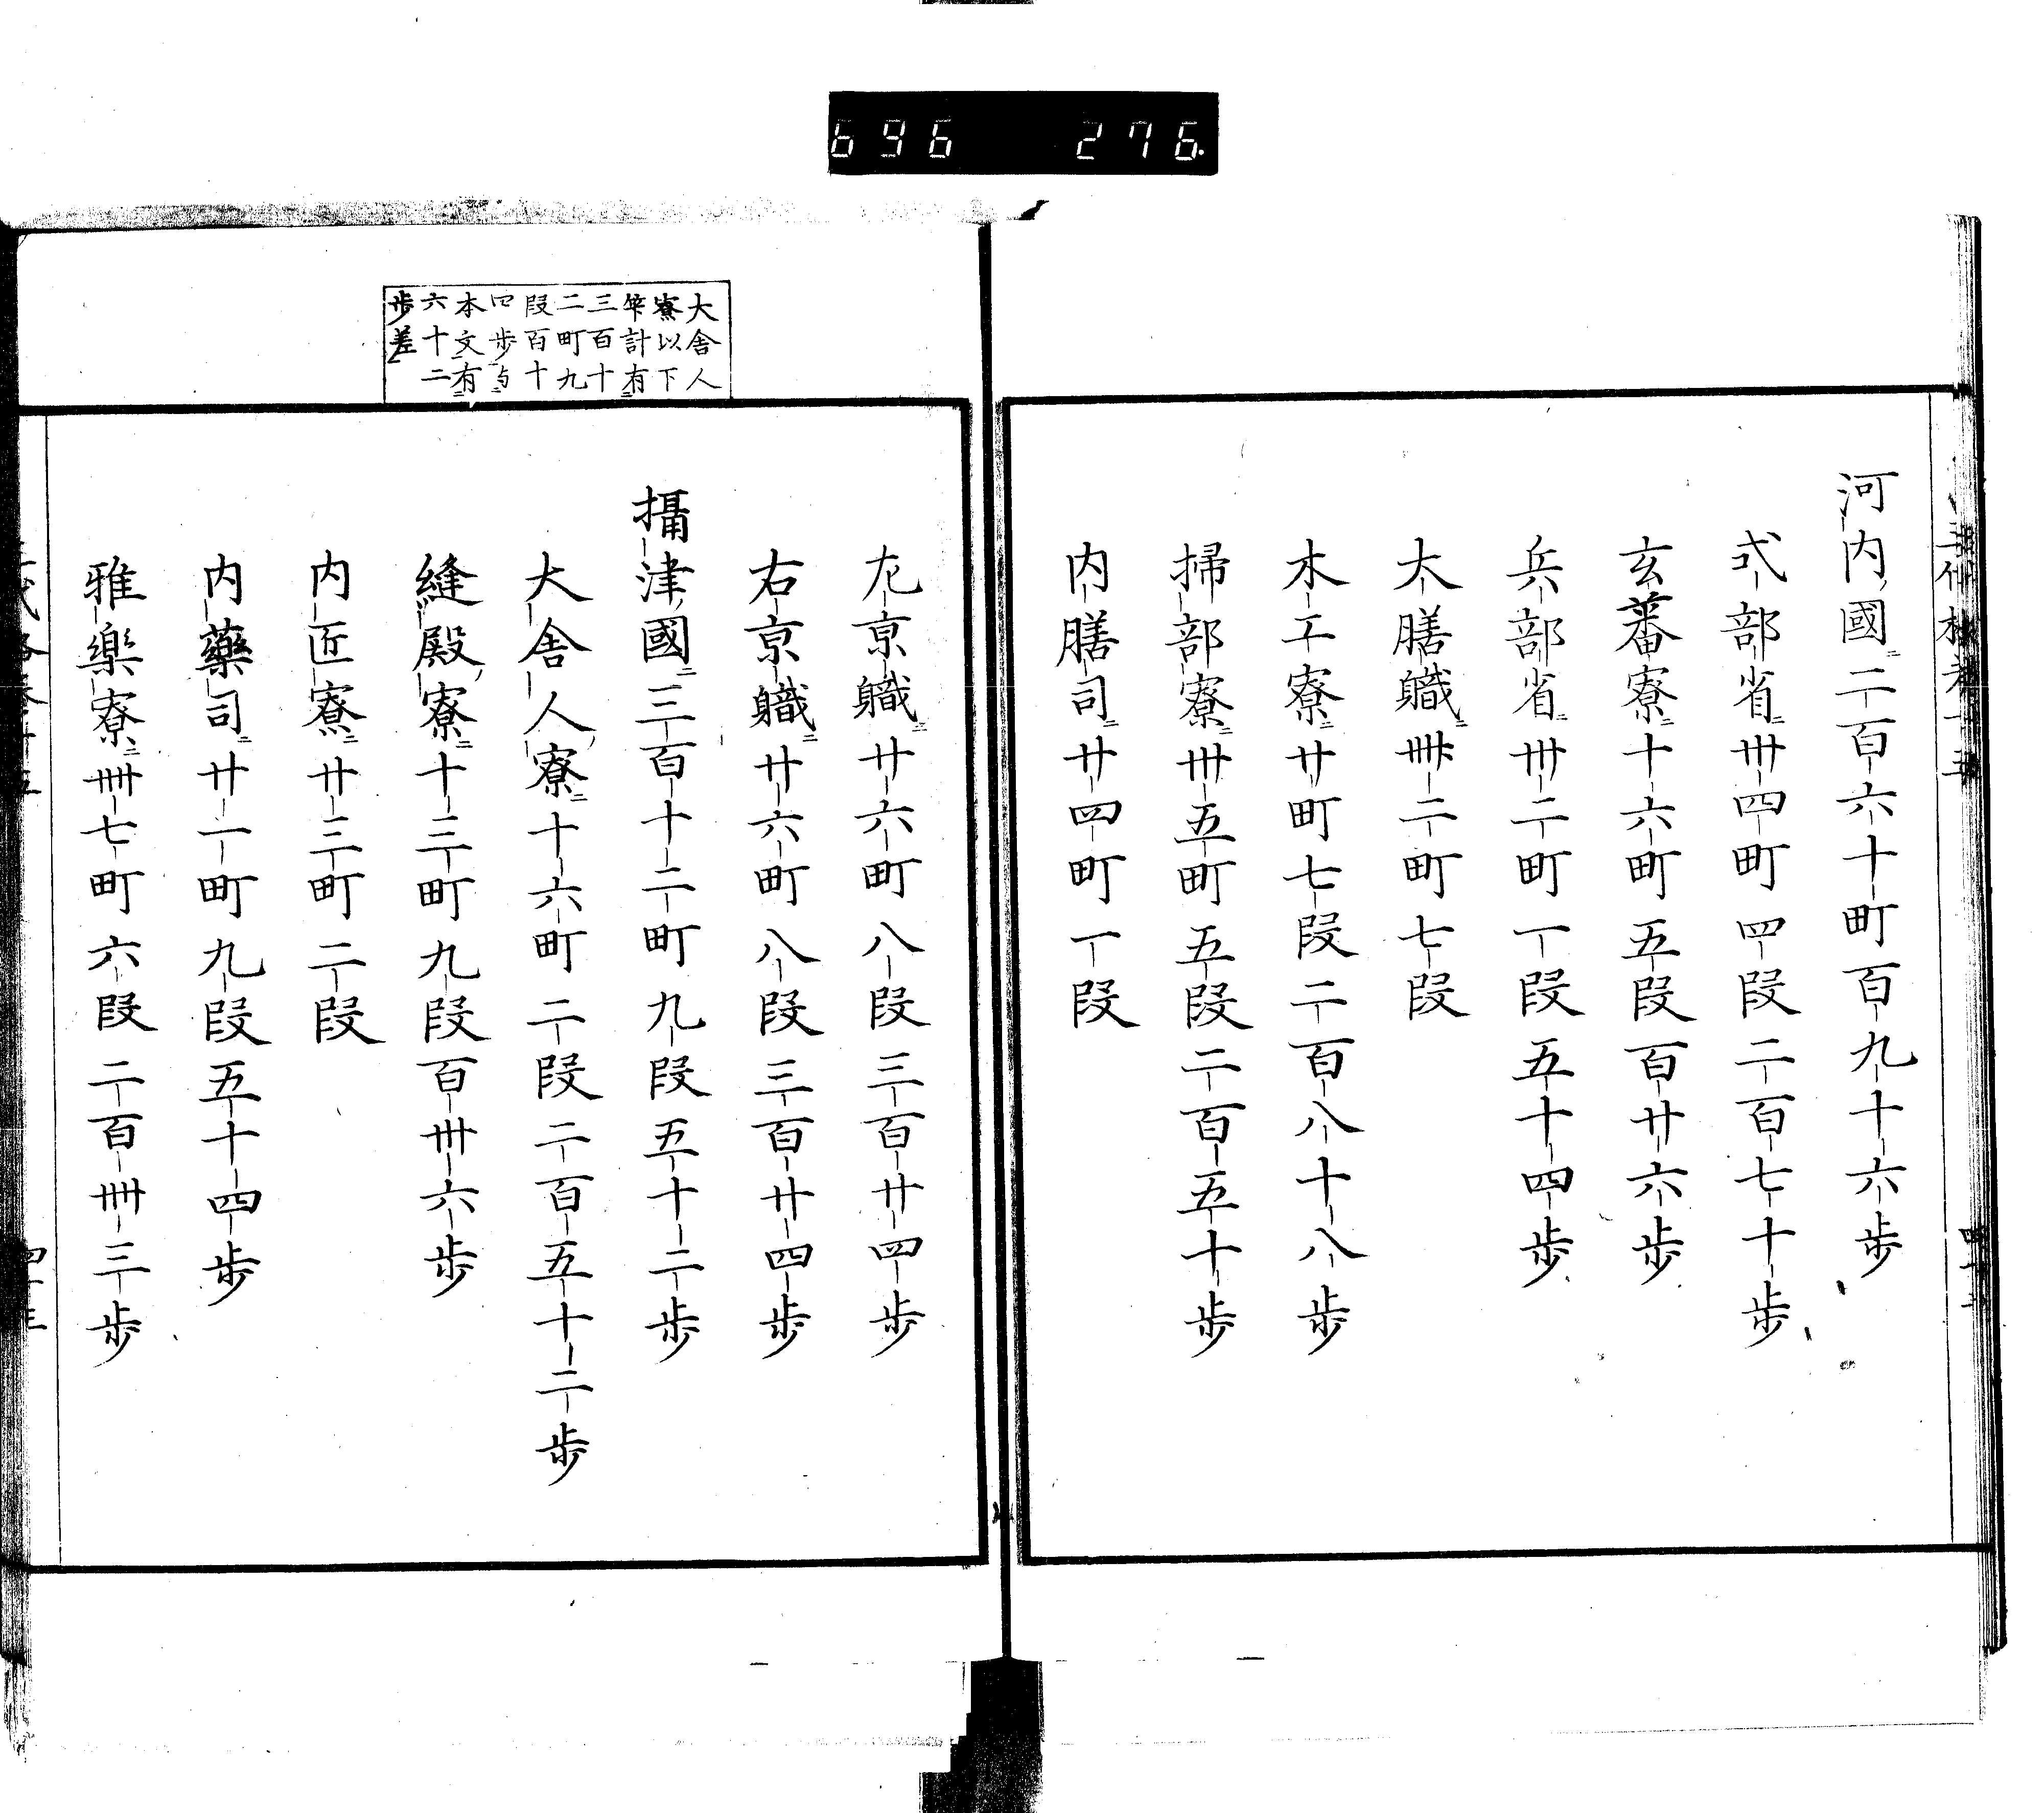 696 276
河内國二百六十町百九十六歩
式部省卅四町四段二百七十歩
玄蕃寮十六町五段百廿六歩
兵部省卅二町一段五十四歩
大膳職卌二町七段
木工寮廿町七段二百八十八歩
掃部寮卅五町五段二百五十歩
内膳司廿四町一段
左京職廿六町八段三百廿四歩
右京職廿六町八段三百廿四歩
攝津國三百十二町九段五十二歩
大舎人寮十六町二段二百五十二歩
縫殿寮十三町九段百卅六歩
内匠寮廿三町二段
内藥司廿一町九段五十四歩
雅樂寮卌七町六段二百卌三歩
大舎人
寮以下
筭計有
三百十
二町九
段百十
四歩与
本文有
六十二
歩差